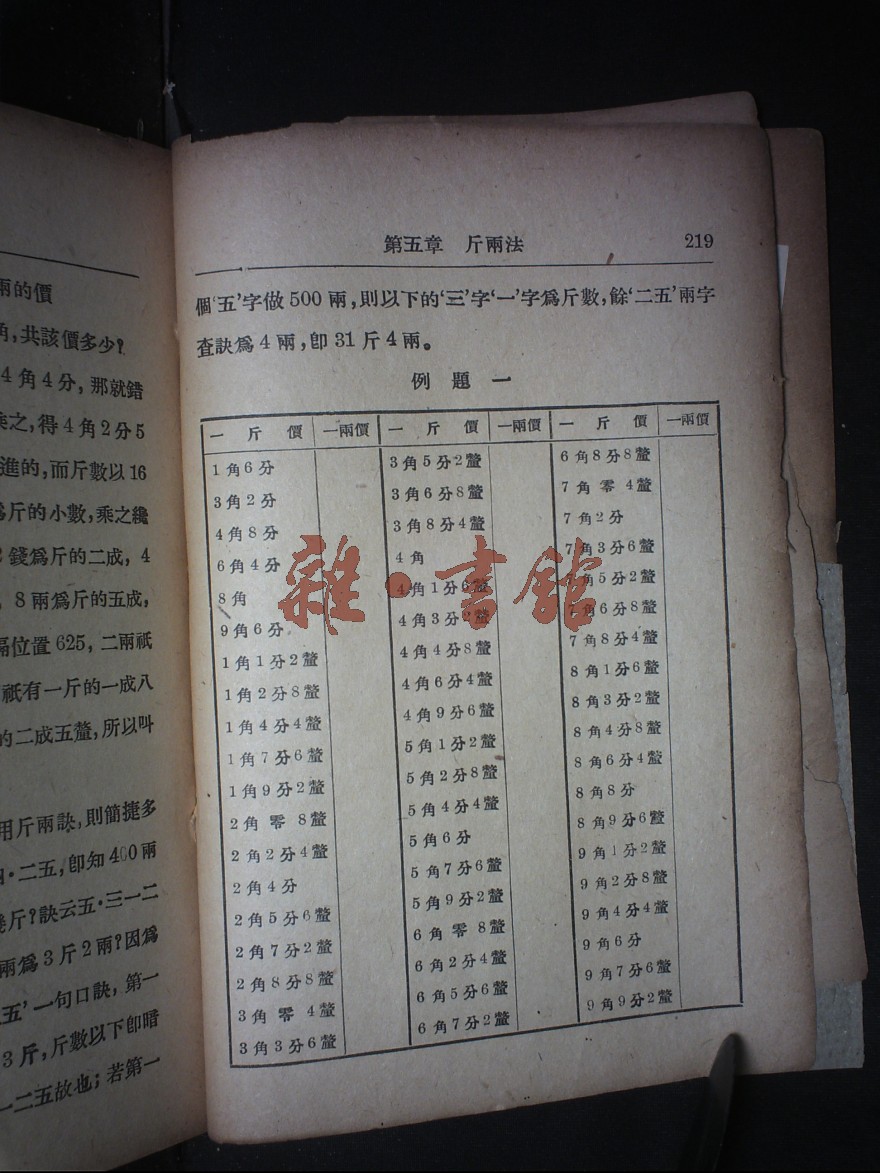 兩的價
角,共該價多少?
4角4分,那就錯
乘之,得4角2分5
進的,而斤數以16
爲斤的小數,乘之纔
錢爲斤的二成,4
8兩爲斤的五成,
隔位置625,二兩祇
祇有一斤的一成八
的二成五釐,所以叫
用斤兩訣,則簡捷多
四·二五,卽知400兩
幾斤?訣云五·三一二
兩爲3斤2兩?因爲
五’一句口訣,第一
3斤,斤數以下卽暗
一二五故也;若第一
第五章 斤兩法 219
個‘五’字做500兩,則以下的‘三’字‘一’字爲斤數,餘‘二五’兩字
查訣爲4兩,卽31斤4兩。
例題一
一斤價 一兩價 一斤價 一兩價 一斤價 一兩價
1角6分 3角5分2釐 6角8分8釐
3角2分 3角6分8釐 7角零4釐
4角8分 3角8分4釐 7角2分
6角4分 4角 7角3分6釐
8角 4角1分6釐 7角5分2釐
9角6分 4角3分2釐 7角6分8釐
1角1分2釐 4角4分8釐 7角8分4釐
1角2分8釐 4角6分4釐 8角1分6釐
1角4分4釐 4角9分6釐 8角3分2釐
1角7分6釐 5角1分2釐 8角4分8釐
1角9分2釐 5角2分8釐 8角6分4釐
2角零8釐 5角4分4釐 8角8分
2角2分4釐 5角6分 8角9分6釐
2角4分 5角7分6釐 9角1分2釐
2角5分6釐 5角9分2釐 9角2分8釐
2角7分2釐 6角零8釐 9角4分4釐
2角8分8釐 6角2分4釐 9角6分
3角零4釐 6角5分6釐 9角7分6釐
3角3分6釐 6角7分2釐 9角9分2釐
雜·書館